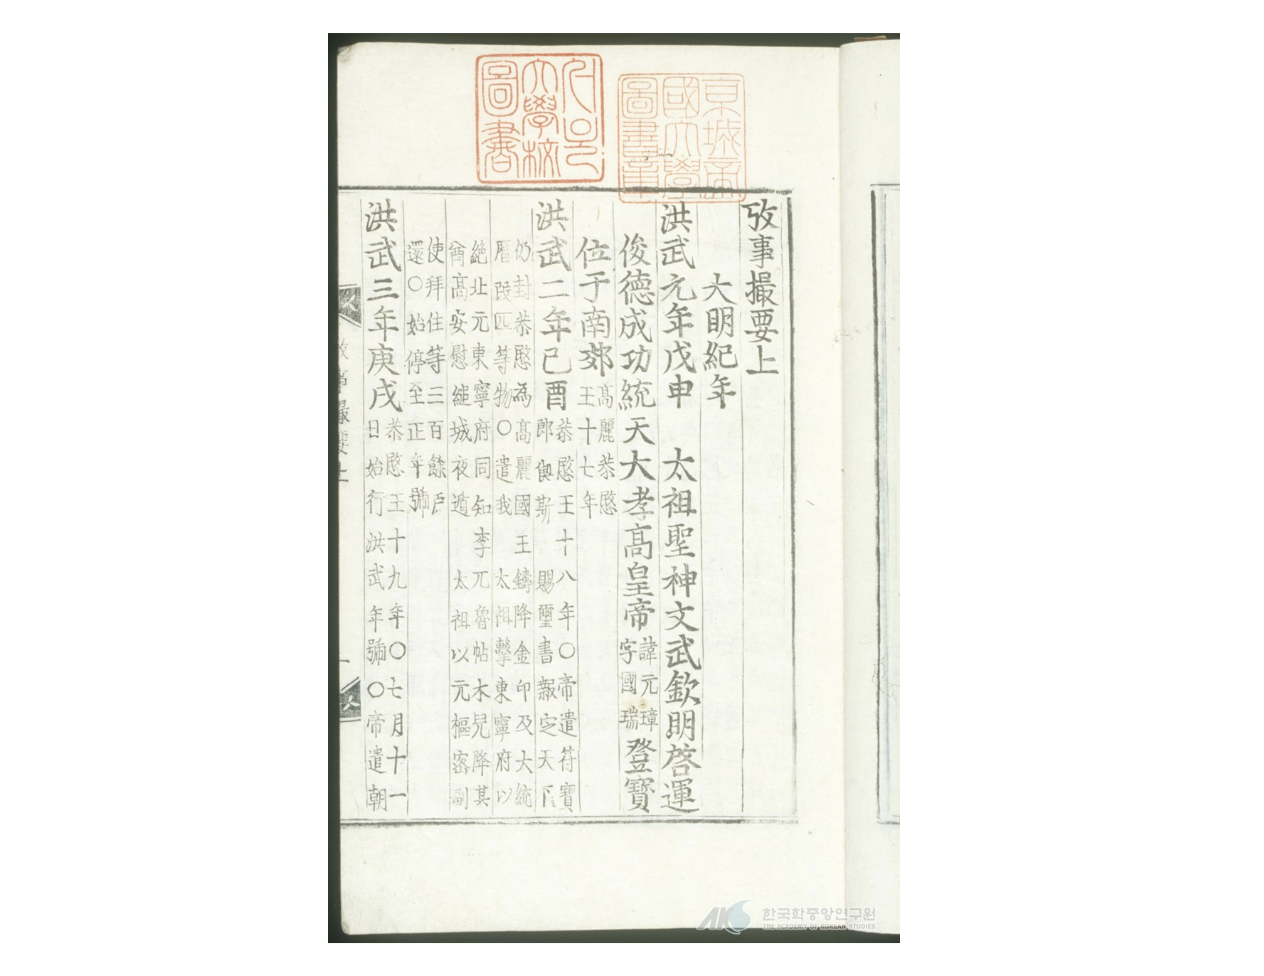 攷事撮要上
大明紀年
洪武元年戊申 太祖聖神文武欽明啓運
俊德成功統天大孝高皇帝諱元璋字國瑞登寶
位于南郊高麗恭愍王十七年
洪武二年己酉恭愍王十八年○帝遣符寶郎偰斯賜璽書報定天下
仍封恭愍為高麗國王鑄降金印及大統曆段匹等物○遣我 太祖擊東寧府以
絶北元東寧府同知李兀魯帖木兒降其酋高安慰縋城夜遁 太祖以元樞密副
使拜住等三百餘戶還○始停至正年號
洪武三年庚戌恭愍王十九年○七月十一日始行洪武年號○帝遣朝
京城帝國大學圖書章
大學校圖書
한국학중앙연구원
THE ACADEMY OF KOREAN STUDIES